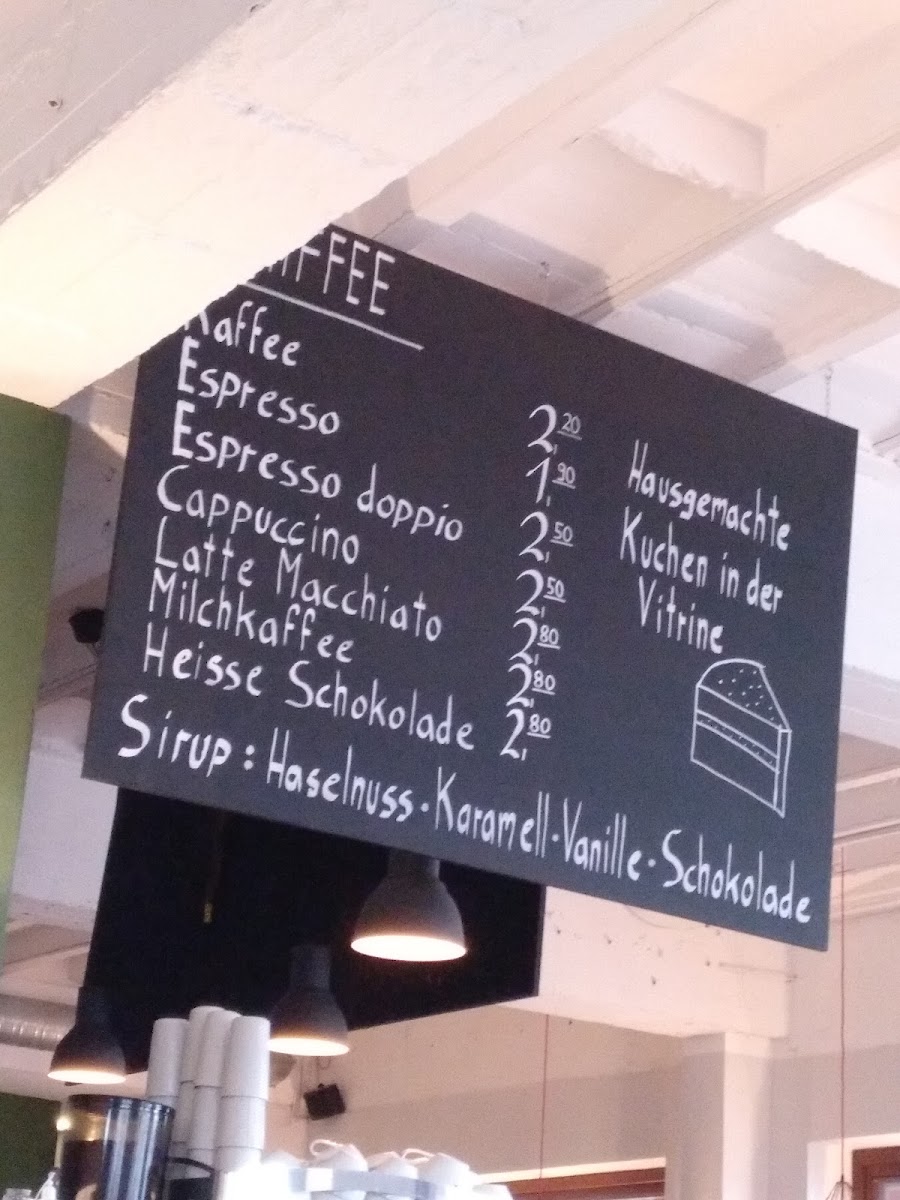 KAFFEE
Kaffee 2,20
Espresso 1,90
Espresso doppio 2,50
Cappuccino 2,50
Latte Macchiato 2,80
Milchkaffee 2,80
Heisse Schokolade 2,80
Sirup: Haselnuss · Karamell · Vanille · Schokolade
Hausgemachte
Kuchen in der
Vitrine